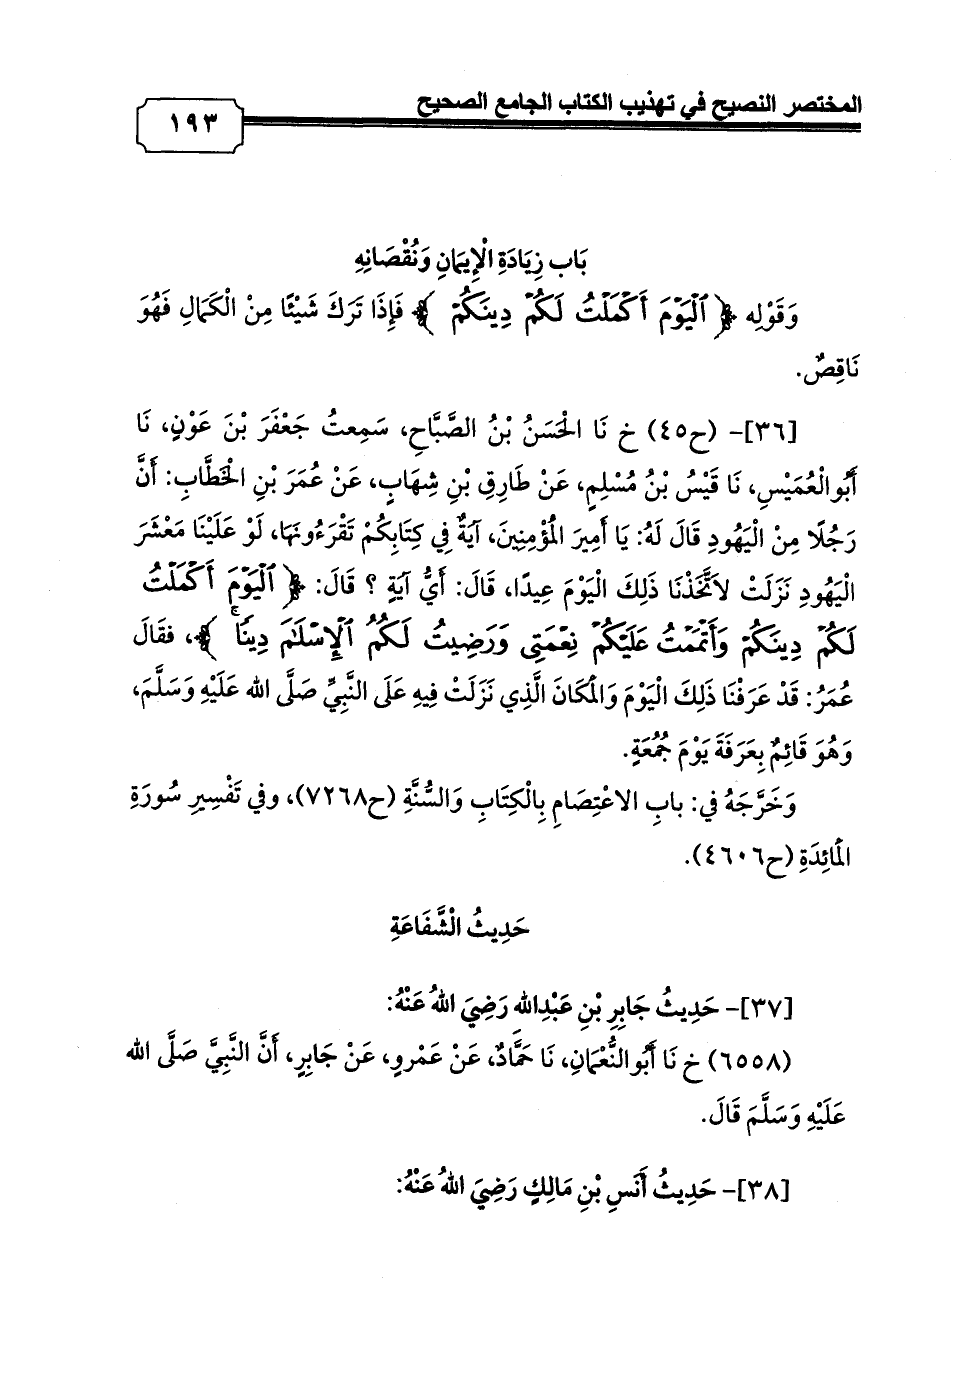 المختصر النصيح في تهذيب الكتاب الجامع الصحيح
١٩٣
بَاب زِيَادَةِ الْإِيمَانِ وَنُقْصَانِهِ
وَقَوْلِه ﴿ ٱلْيَوْمَ أَكْمَلْتُ لَكُمْ دِينَكُمْ ﴾ فَإِذَا تَرَكَ شَيْئًا مِنْ الْكَمَالِ فَهُوَ
نَاقِصٌ.
[٣٦]- (ح٤٥) خ نَا الْحَسَنُ بْنُ الصَّبَّاحِ، سَمِعتُ جَعْفَرَ بْنَ عَوْنٍ، نَا
أَبُوالْعُمَيْسِ، نَا قَيْسُ بْنُ مُسْلِمٍ، عَنْ طَارِقِ بْنِ شِهَابٍ، عَنْ عُمَرَ بْنِ الْخَطَّابِ: أَنَّ
رَجُلًا مِنْ الْيَهُودِ قَالَ لَهُ: يَا أَمِيرَ الْمُؤْمِنِينَ، آيَةٌ فِي كِتَابِكُمْ تَقْرَءُونَهَا، لَوْ عَلَيْنَا مَعْشَرَ
الْيَهُودِ نَزَلَتْ لاَتَّخَذْنَا ذَلِكَ الْيَوْمَ عِيدًا، قَالَ: أَيُّ آيَةٍ ؟ قَالَ: ﴿ ٱلْيَوْمَ أَكْمَلْتُ
لَكُمْ دِينَكُمْ وَأَتْمَمْتُ عَلَيْكُمْ نِعْمَتِي وَرَضِيتُ لَكُمُ ٱلْإِسْلَٰمَ دِينًا ۚ ﴾، فقَالَ
عُمَرُ: قَدْ عَرَفْنَا ذَلِكَ الْيَوْمَ وَالْمَكَانَ الَّذِي نَزَلَتْ فِيهِ عَلَى النَّبِيِّ صَلَّى الله عَلَيْهِ وَسَلَّمَ،
وَهُوَ قَائِمٌ بِعَرَفَةَ يَوْمَ جُمُعَةٍ.
وَخَرَّجَهُ في: بابِ الاعْتِصَامِ بِالْكِتَابِ وَالسُّنَّةِ (ح٧٢٦٨)، وفي تَفْسِيرِ سُورَةِ
الْمَائِدَةِ (ح٤٦٠٦).
حَدِيثُ الْشَّفَاعَةِ
[٣٧]- حَدِيثُ جَابِرِ بْنِ عَبْدِالله رَضِيَ اللهُ عَنْهُ:
(٦٥٥٨) خ نَا أَبُوالنُّعْمَانِ، نَا حَمَّادٌ، عَنْ عَمْرٍو، عَنْ جَابِرٍ، أَنَّ النَّبِيَّ صَلَّى الله
عَلَيْهِ وَسَلَّمَ قَالَ.
[٣٨]- حَدِيثُ أَنَسِ بْنِ مَالِكٍ رَضِيَ اللهُ عَنْهُ: